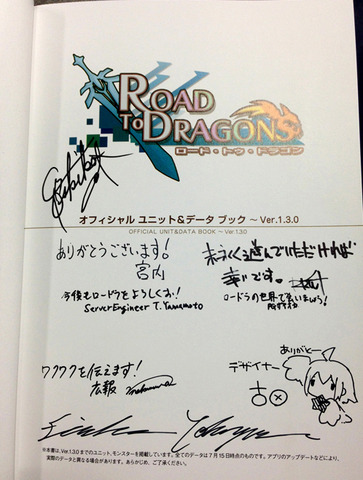 ROAD
TO DRAGONS
ロード・トゥ・ドラゴン
オフィシャル ユニット&データ ブック ～ Ver.1.3.0
OFFICIAL UNIT&DATA BOOK ～ Ver.1.3.0
ありがとうございます!
宮内
末永く遊んでいただければ
幸いです。
今後もロードラをよろしくお!
ServerEngineer T.Yamamoto
ロードラの世界で会いましょう!
ワクワクを伝えます!
広報
ありがとー
デザイナー
※本書は、Ver.1.3.0までのユニット、モンスターを掲載しています。全てのデータは7月15日時点のものです。アプリのアップデートなどにより、
実際のデータと異なる場合があります。あらかじめ、ご了承ください。